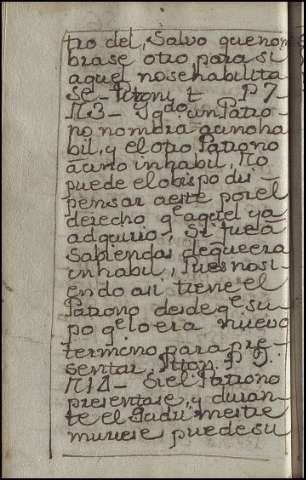 tro del, Salvo que nom
brase otro para si
aquel nosehabilita
se- Pitoni t P 7.
N3- Yqdo. un Patro-
no nombra a uno ha-
bil, y el otro Patrono
a uno inhabil, No
puede el obispo dis-
pensar a este por el
derecho qe. aquel ya
adquirio, Si fue a
Sabiendas de que era
inhabil, Pues no si-
endo asi tiene el
Patrono desde qe. su
po qe. lo era nuevo
termino para pre-
sentar. Piton. P J.
N14- Si el Patrono
presentase, y duran-
te el Quadrimestre
muriese puede su